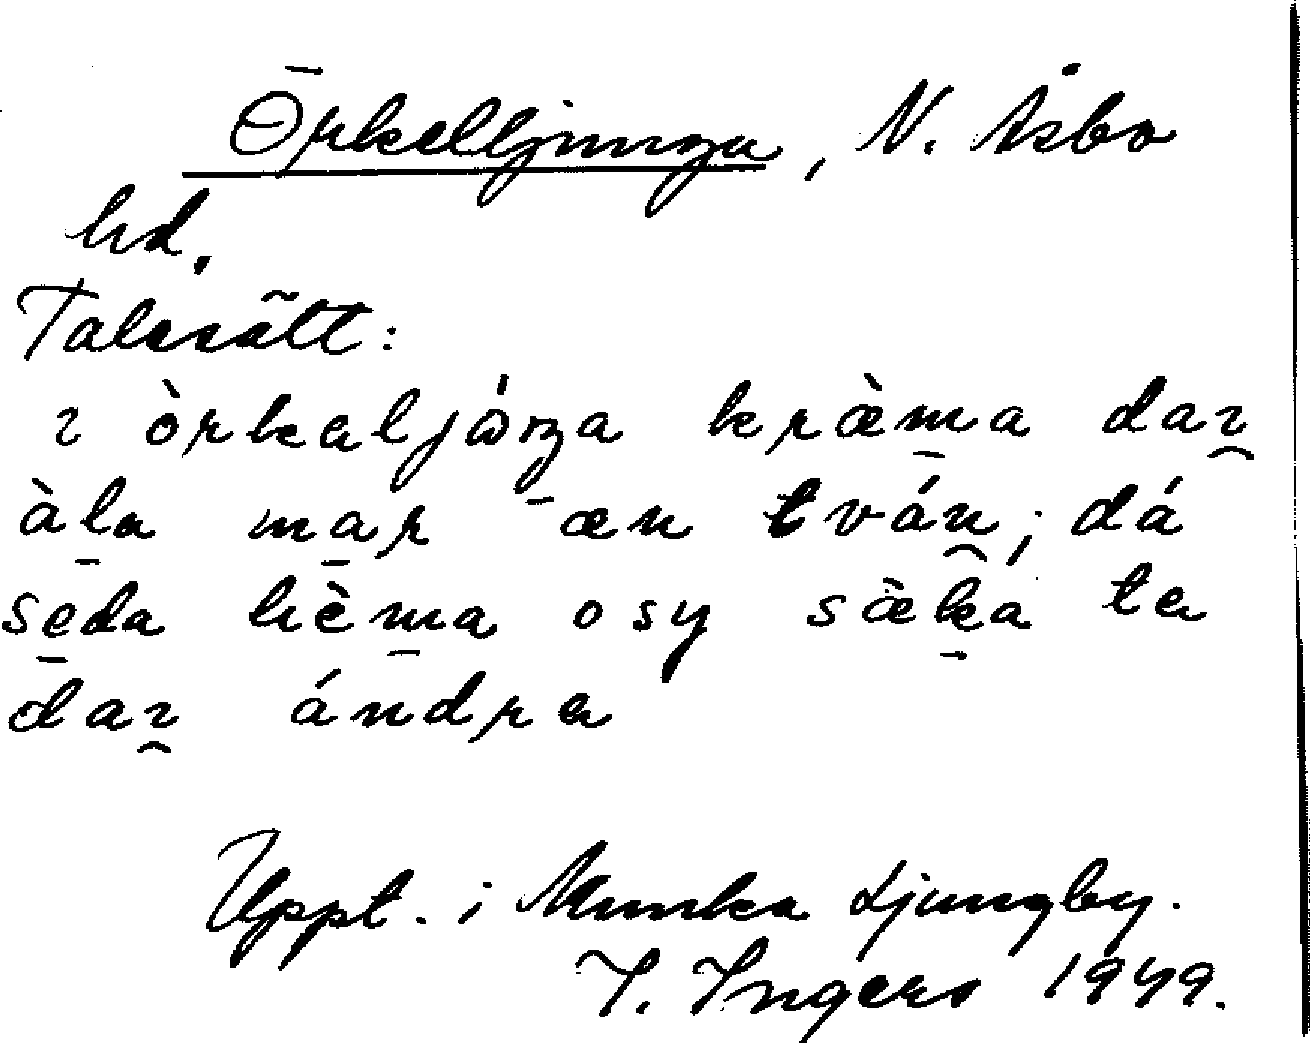 Örkelljunga, N. Åsbo
hd.
Talesätt:
ı òrkaljώŋa kræ̀m̱a daı̯
àḻa ma̱r æn tván̯; dá
se̱da hèm̱a osy sæ̀ḵá te
daı̯ ándra
Uppt. i Munka Ljungby.
I. Ingers 1949.